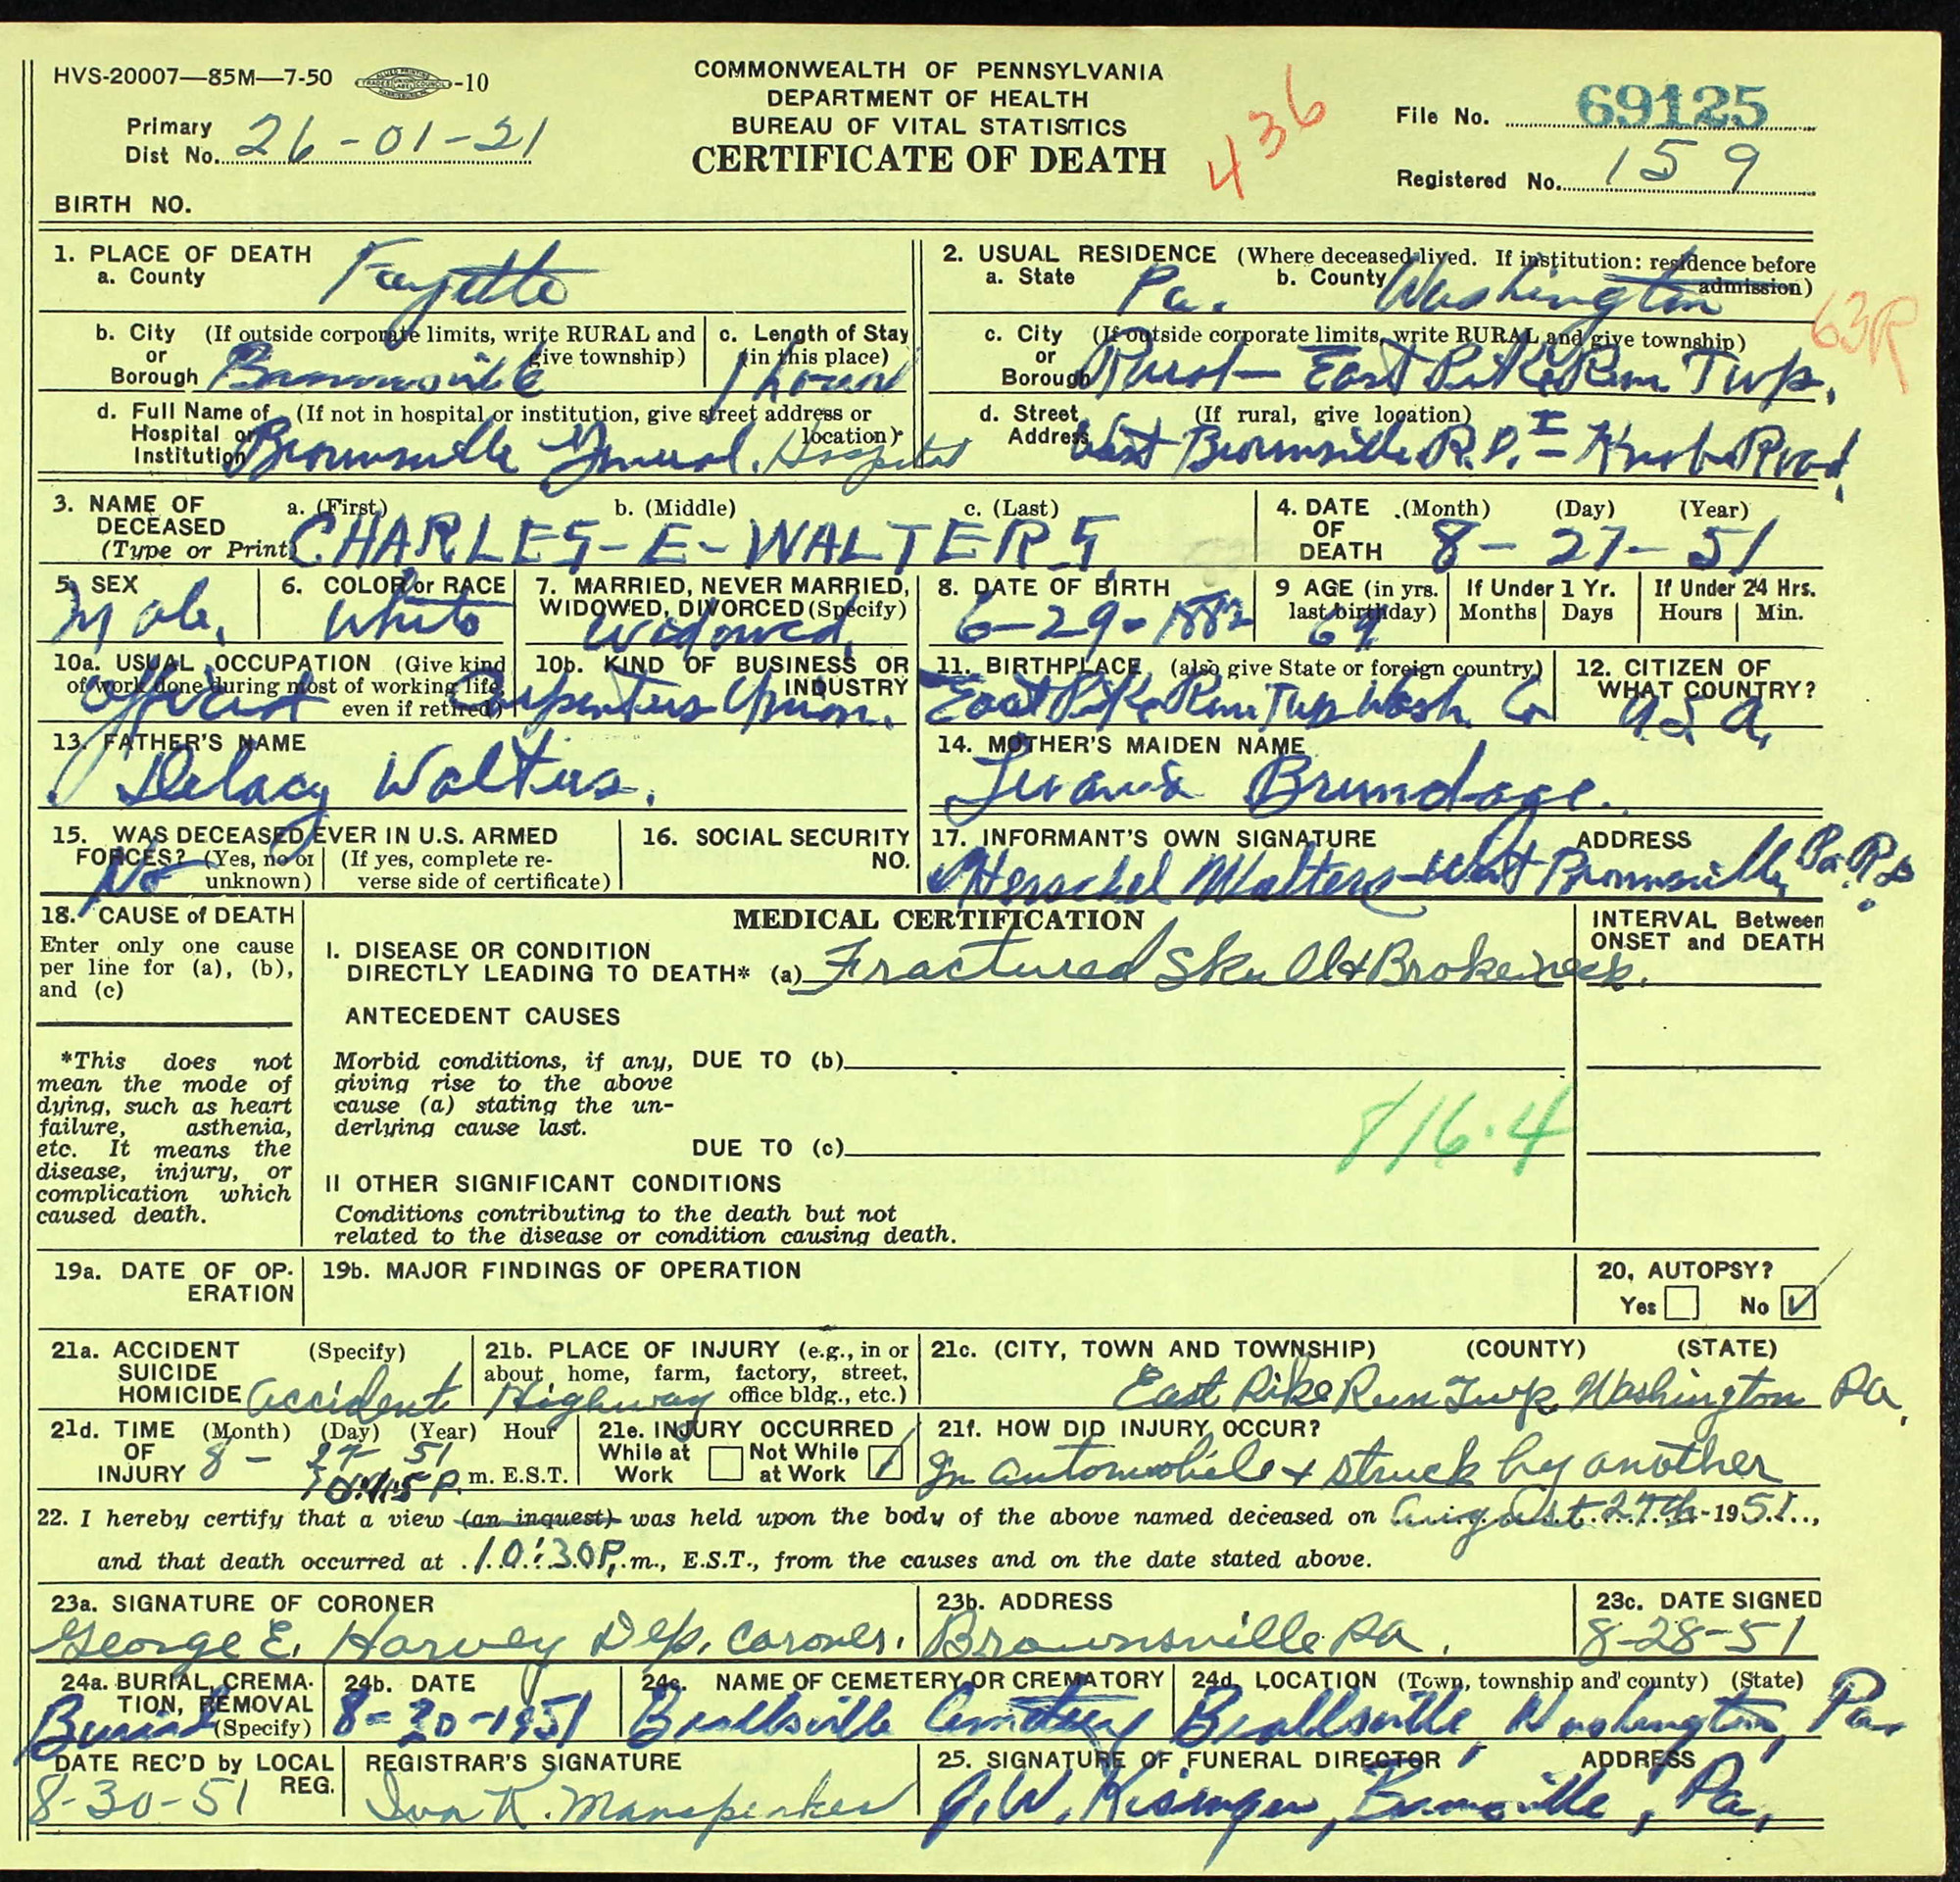 HVS-20007—85M—7-50 -10
COMMONWEALTH OF PENNSYLVANIA
DEPARTMENT OF HEALTH
BUREAU OF VITAL STATISTICS
CERTIFICATE OF DEATH
436
Primary Dist No. 26-01-21
File No. 69125
Registered No. 159
BIRTH NO.
1. PLACE OF DEATH
a. County Fayette
2. USUAL RESIDENCE (Where deceased lived. If institution: residence before admission)
a. State Pa. b. County Washington
63R
b. City or Borough (If outside corporate limits, write RURAL and give township) Brownsville
c. Length of Stay (in this place) 1 hour
c. City or Borough (If outside corporate limits, write RURAL and give township) Rural - East Pike Run Twp.
d. Full Name of Hospital or Institution (If not in hospital or institution, give street address or location) Brownsville General Hospital
d. Street Address (If rural, give location) West Brownsville R.D. I - Knob Road
3. NAME OF DECEASED (Type or Print) a. (First) b. (Middle) c. (Last)
CHARLES - E - WALTERS
4. DATE OF DEATH (Month) (Day) (Year)
8 - 27 - 51
5. SEX Male.
6. COLOR or RACE White
7. MARRIED, NEVER MARRIED, WIDOWED, DIVORCED (Specify) Widowed.
8. DATE OF BIRTH 6-29-1882
9 AGE (in yrs. last birthday) 69
If Under 1 Yr. Months Days
If Under 24 Hrs. Hours Min.
10a. USUAL OCCUPATION (Give kind of work done during most of working life, even if retired) Official
10b. KIND OF BUSINESS OR INDUSTRY Carpenters Union.
11. BIRTHPLACE (also give State or foreign country) East Pike Run Twp Wash. Co
12. CITIZEN OF WHAT COUNTRY? U.S.A.
13. FATHER'S NAME
Delacy Walters.
14. MOTHER'S MAIDEN NAME
Brundage.
15. WAS DECEASED EVER IN U.S. ARMED FORCES? (Yes, no or unknown) (If yes, complete reverse side of certificate) No
16. SOCIAL SECURITY NO.
17. INFORMANT'S OWN SIGNATURE ADDRESS
Herschel Walters - West Brownsville, Pa.
18. CAUSE of DEATH
Enter only one cause per line for (a), (b), and (c)
*This does not mean the mode of dying, such as heart failure, asthenia, etc. It means the disease, injury, or complication which caused death.
MEDICAL CERTIFICATION
INTERVAL Between ONSET and DEATH
I. DISEASE OR CONDITION DIRECTLY LEADING TO DEATH* (a) Fractured Skull & Broke neck.
ANTECEDENT CAUSES
Morbid conditions, if any, giving rise to the above cause (a) stating the underlying cause last.
DUE TO (b)
DUE TO (c)
816.4
II OTHER SIGNIFICANT CONDITIONS
Conditions contributing to the death but not related to the disease or condition causing death.
19a. DATE OF OPERATION
19b. MAJOR FINDINGS OF OPERATION
20. AUTOPSY?
Yes No ✓
21a. ACCIDENT SUICIDE HOMICIDE (Specify) accident
21b. PLACE OF INJURY (e.g., in or about home, farm, factory, street, office bldg., etc.) Highway
21c. (CITY, TOWN AND TOWNSHIP) (COUNTY) (STATE)
East Pike Run Twp Washington Pa.
21d. TIME OF INJURY (Month) (Day) (Year) Hour
8 - 27 51
P. m. E.S.T.
21e. INJURY OCCURRED While at Work Not While at Work
21f. HOW DID INJURY OCCUR?
In automobile & struck by another
22. I hereby certify that a view (an inquest) was held upon the body of the above named deceased on August 27th - 1951,
and that death occurred at 10:30 P. m., E.S.T., from the causes and on the date stated above.
23a. SIGNATURE OF CORONER
George E. Harvey Dep. Coroner.
23b. ADDRESS
Brownsville Pa.
23c. DATE SIGNED
8-28-51
24a. BURIAL, CREMATION, REMOVAL (Specify) Burial
24b. DATE
8-30-1951
24c. NAME OF CEMETERY OR CREMATORY
Beallsville Cemetery
24d. LOCATION (Town, township and county) (State)
Beallsville, Washington, Pa.
DATE REC'D by LOCAL REG.
8-30-51
REGISTRAR'S SIGNATURE
K.
25. SIGNATURE OF FUNERAL DIRECTOR ADDRESS
J.W. Kisinger, Brownsville, Pa.